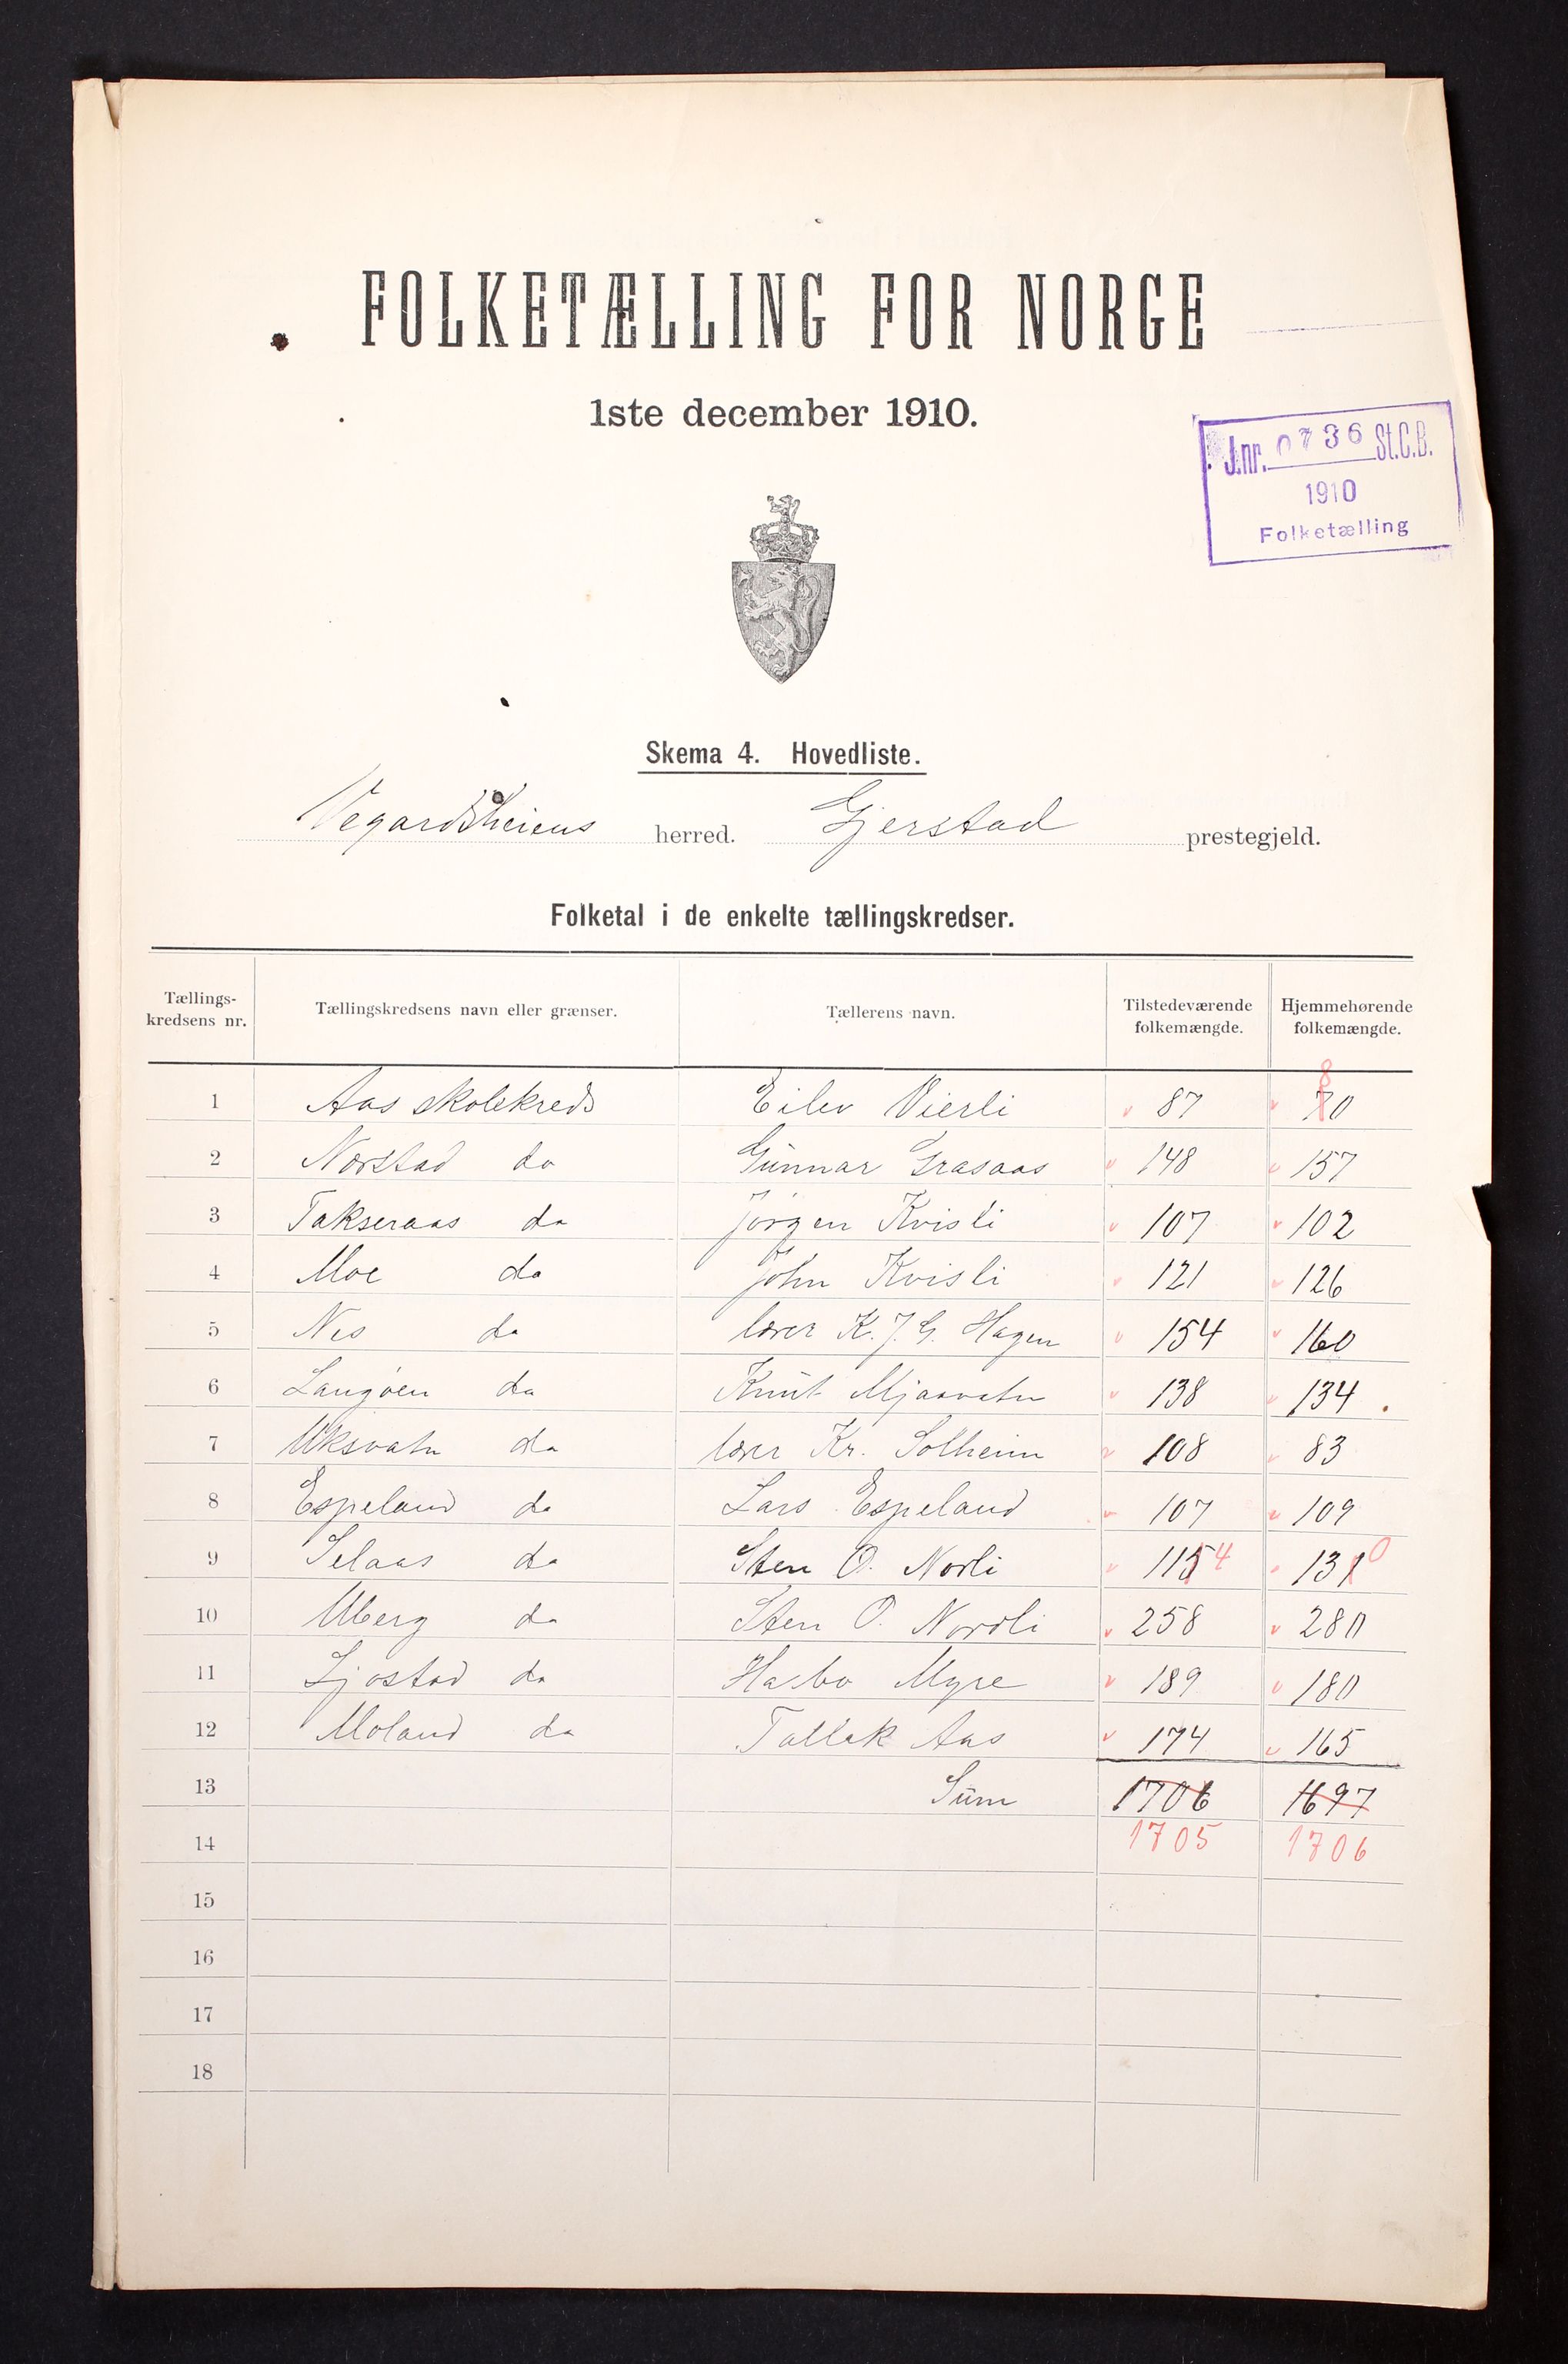 FOLKETÆLLING FOR NORGE
1ste december 1910.
J.nr. 0736 St.C.B.
1910
Folketælling
Skema 4. Hovedliste.
Vegardsheiens herred. Gjerstad prestegjeld.
Folketal i de enkelte tællingskredser.
Tællings-kredsens nr. Tællingskredsens navn eller grænser. Tællerens navn. Tilstedeværende folkemængde. Hjemmehørende folkemængde.
1 Aas skolekreds Eilev Vierli 87 70 8
2 Norstad do Gunnar Grasaas 148 157
3 Takseraas do Jørgen Kvisli 107 102
4 Moe do John Kvisli 121 126
5 Nes do lærer K. J. G. Hagen 154 160
6 Langøen do Knut Mjaavatn 138 134
7 Uksvatn do lærer Kr. Solheim 108 83
8 Espeland do Lars Espeland 107 109
9 Selaas do Sten O. Norli 115 4 131 0
10 Uberg do Sten O. Nordli 258 280
11 Ljøstad do Myre 189 180
12 Moland do Tallak Aas 174 165
13 Sum 1706 1697
14 1705 1706
15
16
17
18